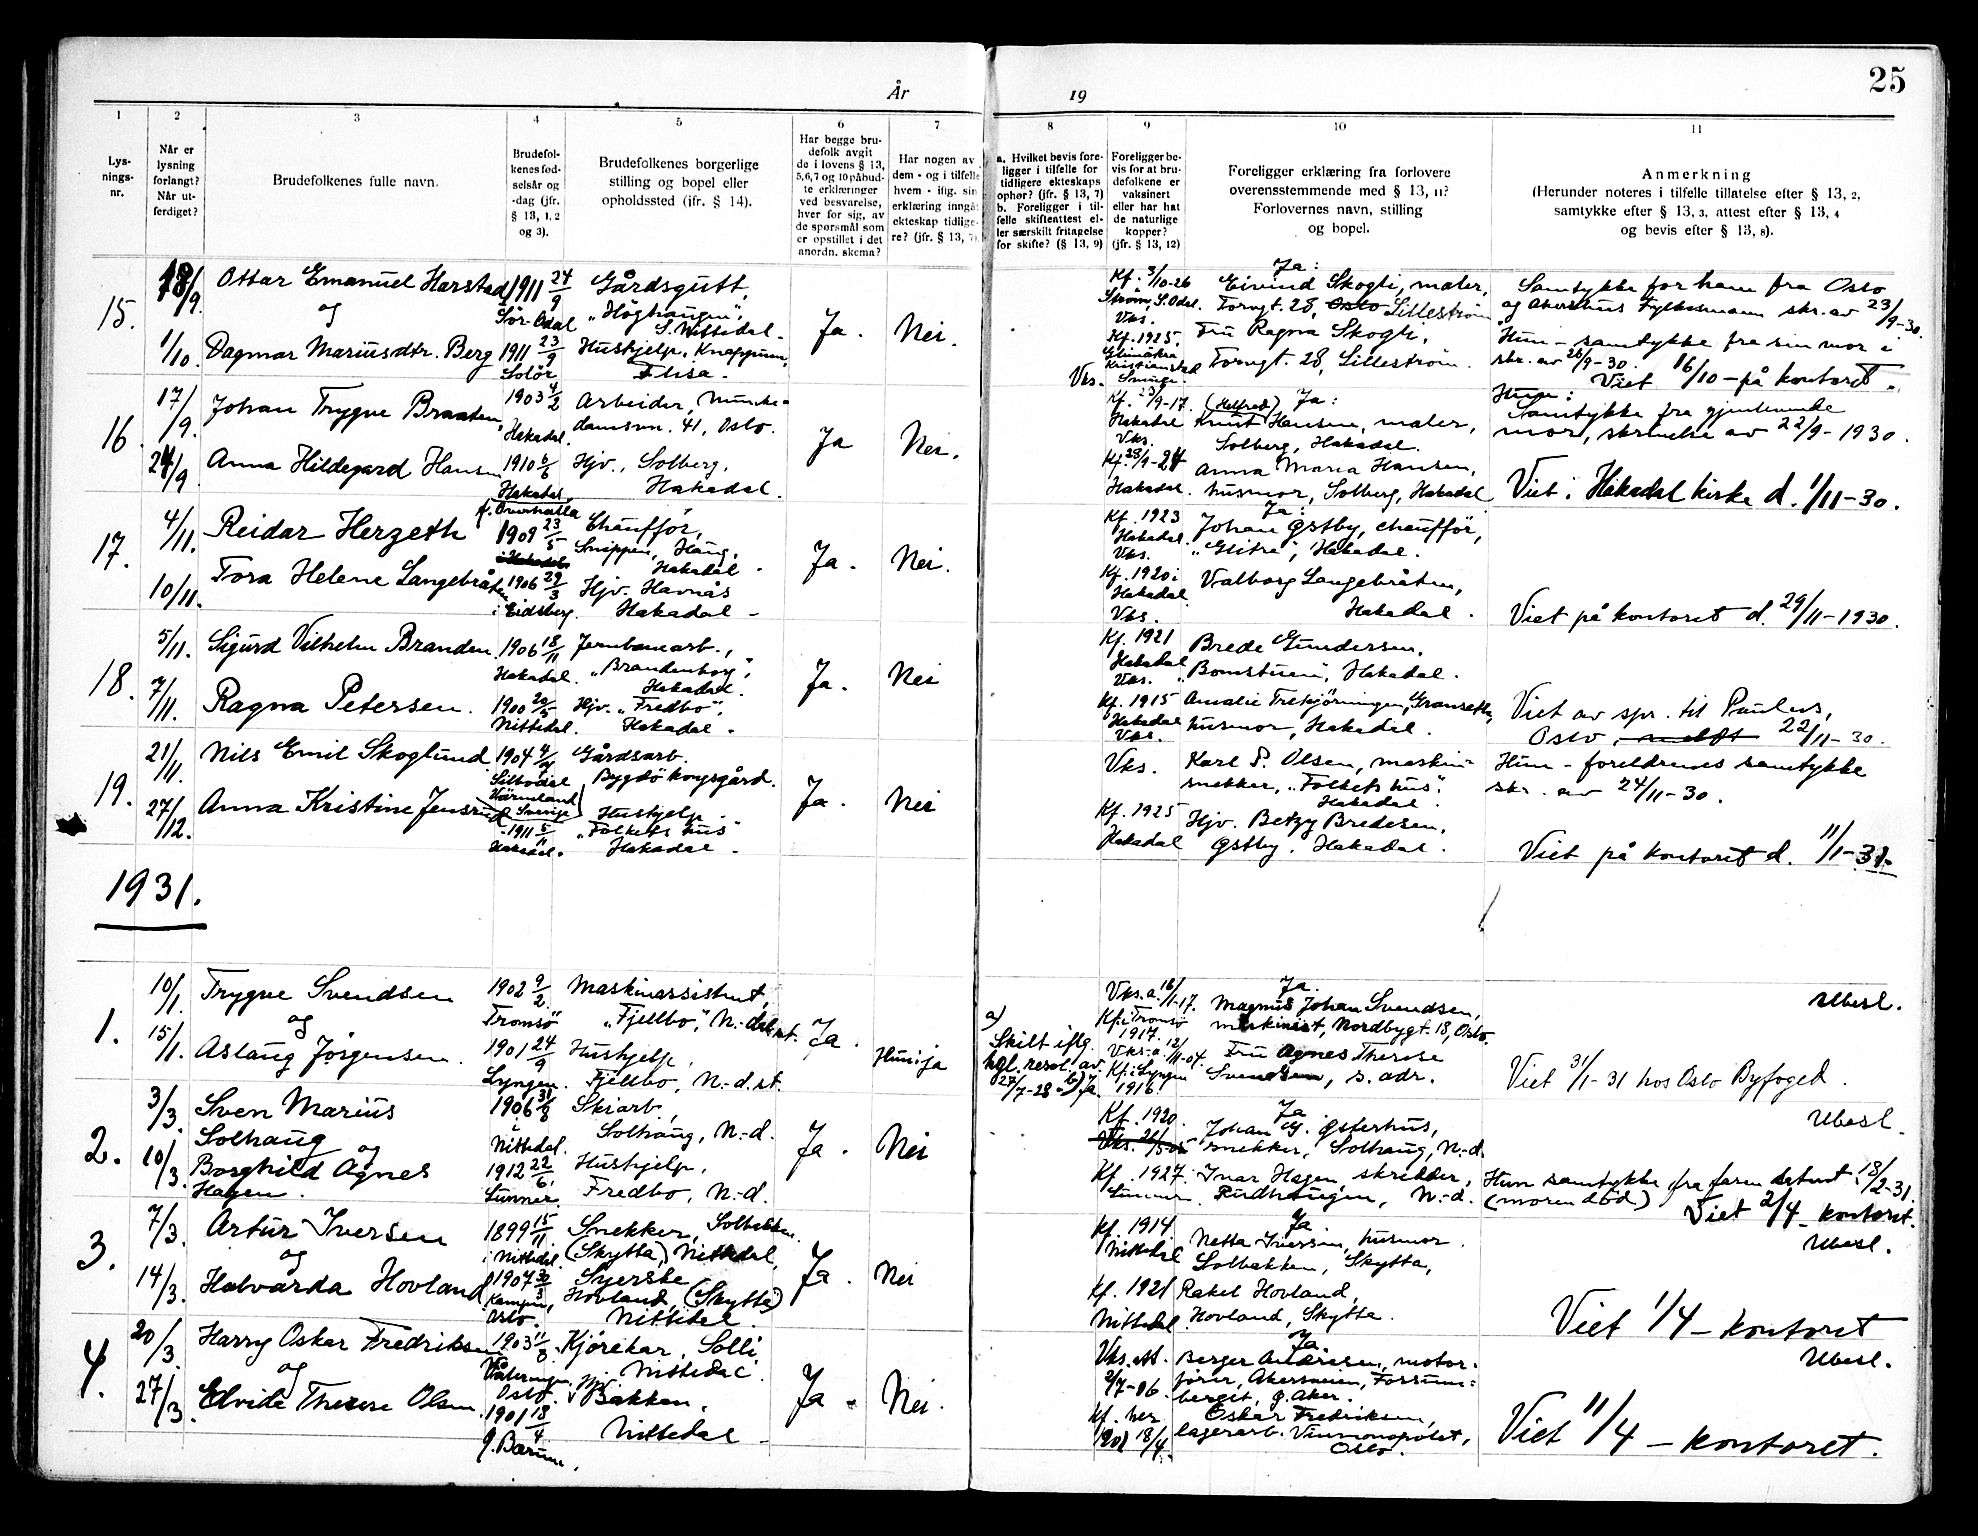 År
19
25
1
Lys-
nings-
nr.
2
Når er
lysning
forlangt?
Når ut-
ferdiget?
3
Brudefolkenes fulle navn.
4
Brudefol-
kenes fød-
selsår og
-dag (jfr.
§ 13, 1, 2
og 3).
5
Brudefolkenes borgerlige
stilling og bopel eller
opholdssted (ifr. § 14).
6
Har begge bru-
defolk avgit
de i lovens § 13,
5,6,7 og 10 påbud-
te erklæringer
ved besvarelse,
hver for sig, av
de spørsmål som
er opstillet i det
anordn. skema?
7
Har nogen av
dem - og i tilfelle
hvem - iflg. sin
erklæring inngåt
ekteskap tidlige-
re? (jfr. § 13, 7).
8
a. Hvilket bevis fore-
ligger i tilfelle for
tidligere ekteskaps
ophør? (jfr. § 13, 7)
b. Foreligger i til-
felle skifteattest el-
ler særskilt fritagelse
for skifte? (§ 13, 9)
9
Foreligger be-
vis for at bru-
defolkene er
vaksinert
eller har hat
de naturlige
kopper?
(jfr. § 13, 12)
10
Foreligger erklæring fra forlovere
overensstemmende med § 13, 11?
Forlovernes navn, stilling
og bopel.
11
Anmerkning
(Herunder noteres i tilfelle tillatelse efter § 13, 2,
samtykke efter § 13, 3, attest efter § 13, 4
og bevis efter § 13, 8).
15.
18/9.
1/10.
Ottar Emanuel Harstad
og
Dagmar Mariusdtr. Berg
1911 24/9
Sør-Odal
1911 23/9
Solør
Gårdsgutt,
"Høghaugen",
S. Nittedal.
Hushjelp, Knappum,
Flisa.
Ja.
Nei.
Kf. 3/10-26
Strøm, S. Odal.
Vks.
Kf. 1925,
Kristianstad
Vks.
Ja:
Eivind Skogli, maler,
Torvgt. 28, Oslo Lillestrøm
Fru Ragna Skogli,
Torvgt. 28, Lillestrøm.
Samtykke for ham fra Oslo
og Akershus Fylkesmann skr. av 23/9-30.
Hun - samtykke fra sin mor i
skr. av 26/9-30.
Viet 16/10 - på kontoret.
16.
17/9.
24/9
Johan Trygve Braaten,
Anna Hildegard Hansen
1903 4/2
Hakadal.
1910 6/6
Hakadal.
Arbeider, Munke-
damsvn. 41, Oslo.
Hjv., Solberg,
Hakadal.
Ja
Nei.
Kf. 23/9-17.
Hakadal
Vks.
Kf. 23/9-24
Hakadal.
(Helfred) Ja:
Knut Hansen, maler,
Solberg, Hakadal.
Anna Maria Hansen,
husmor, Solberg, Hakadal
Hun:
Samtykke fra gjenlevende
mor, skrivelse av 22/9-1930.
Viet i Hakadal kirke d. 1/11-30.
17.
4/11.
10/11.
Reidar Herzeth
Tora Helene Langebråten
f. Overhalla
1909 23/5
i Hakadal
1906 29/3
i Eidsberg.
Chauffør,
Snippen, Haug,
Hakadal.
Hjv. Havnås
Hakadal -
Ja.
Nei.
Kf. 1923
Hakadal.
Vks.
Kf. 1920 i
Hakadal
Vks.
Ja:
Johan Østby, chauffør,
"Glitre", Hakadal.
Valborg Langebråten,
Hakadal.
Viet på kontoret d. 29/11-1930.
18.
5/11.
7/11.
Sigurd Vilhelm Branden
Ragna Petersen.
1906 18/11
Hakadal.
1900 20/5
Nittedal.
Jernbanearb.,
"Brandenborg",
Hakadal.
Hjv. "Fredbo",
Hakadal.
Ja.
Nei
Kf. 1921
Hakadal
Vks.
Kf. 1915
Hakadal
Vks.
Brede Gundersen,
Bomstuen, Hakadal.
Amalie Trekjørningen, Gransetha,
husmor, Hakadal.
Viet av spr. til Paulus,
Oslo, 22/11-30.
19.
21/11.
27/12.
Nils Emil Skoglund
Anna Kristine Jensrud
1904 9/4
Silbodal
Värmland
Sverige
1911 5/11
Hakadal.
Gårdsarb.
Bygdø kongsgård.
Hushjelp.
"Folkets hus"
Hakadal.
Ja.
Nei
Vks.
Kf. 1925
Hakadal
Karl P. Olsen, maskin-
snekker, "Folkets hus",
Hakadal.
Hjv. Betzy Bredesen,
Østby, Hakadal.
Hun - foreldrenes samtykke
skr. av 24/11-30.
Viet på kontoret d. 11/1-31.
1931.
1.
10/1
15/1.
Trygve Svendsen
og
Aslaug Jørgensen.
1902 9/2
Tromsø
1901 24/9
Lyngen.
Maskinassistent,
"Fjellbo", N.-dal st.
Hushjelp,
Fjellbo, N.-d. st.
Ja.
Hun: ja
a)
Skilt iflg.
kgl. resol. av
27/7-28 - b) Ja
Vks.a. 16/1-17.
Kf. i Tromsø
1917.
Vks.a. 12/11-04.
Kf. i Lyngen
1916.
Ja.
Magnus Johan Svendsen,
maskinist, Nordbygt. 18, Oslo.
Fru Agnes Therese
Svendsen, s. adr.
Ubesl.
Viet 31/1-31 hos Oslo Byfoged.
2.
3/3.
10/3.
Sven Marius
Solhaug
og
Borghild Agnes
Hagen.
1906 31/8
i
Nittedal.
1912 22/6.
Lunner
Skiarb.,
Solhaug, N.-d.
Hushjelp,
Fredbo, N.-d.
Ja.
Nei
Kf. 1920.
Kf. 1927.
Lunner
Ja
Johan G. Østerhus,
snekker, Solhaug, N.-d.
Ivar Hagen, skredder,
Rudhaugen, N.-d.
Ubesl.
Hun samtykke fra faren datert 18/2-31.
(moren død)
Viet 2/4 - kontoret.
3.
7/3.
14/3.
Artur Iversen
og
Halvarda Hovland
1899 15/11
i Nittedal.
1907 30/3
Kampen,
Oslo.
Snekker, Solbakken
(Skytta) Nittedal,
Syerske
Hovland, (Skytta)
Nittedal.
Ja.
Nei
Kf. 1914
Nittedal
Kf. 1921
Nittedal.
Ja
Netta Iversen, husmor.
Solbakken, Skytta,
Rakel Hovland,
Hovland, Skytta.
Ubesl.
Viet 1/4 - kontoret
4.
20/3.
27/3.
Harry Oskar Fredriksen
og
Elvida Therese Olsen.
1903 11/8
Vålerengen,
Oslo.
1901 18/4
Ø. Bærum,
Kjørekar, Solli
Nittedal.
Hjv.
Bakken,
Nittedal -
Ja.
Nei.
Vks. att.
2/7-06.
Kf. her
18/4.
Ja.
Berger Andresen, motor-
fører, Akersveien,
bergit, Ø. Aker.
Oskar Fredriksen,
lagerarb. Vinmonopolet,
Oslo.
Ubesl.
Viet 11/4 - kontoret.